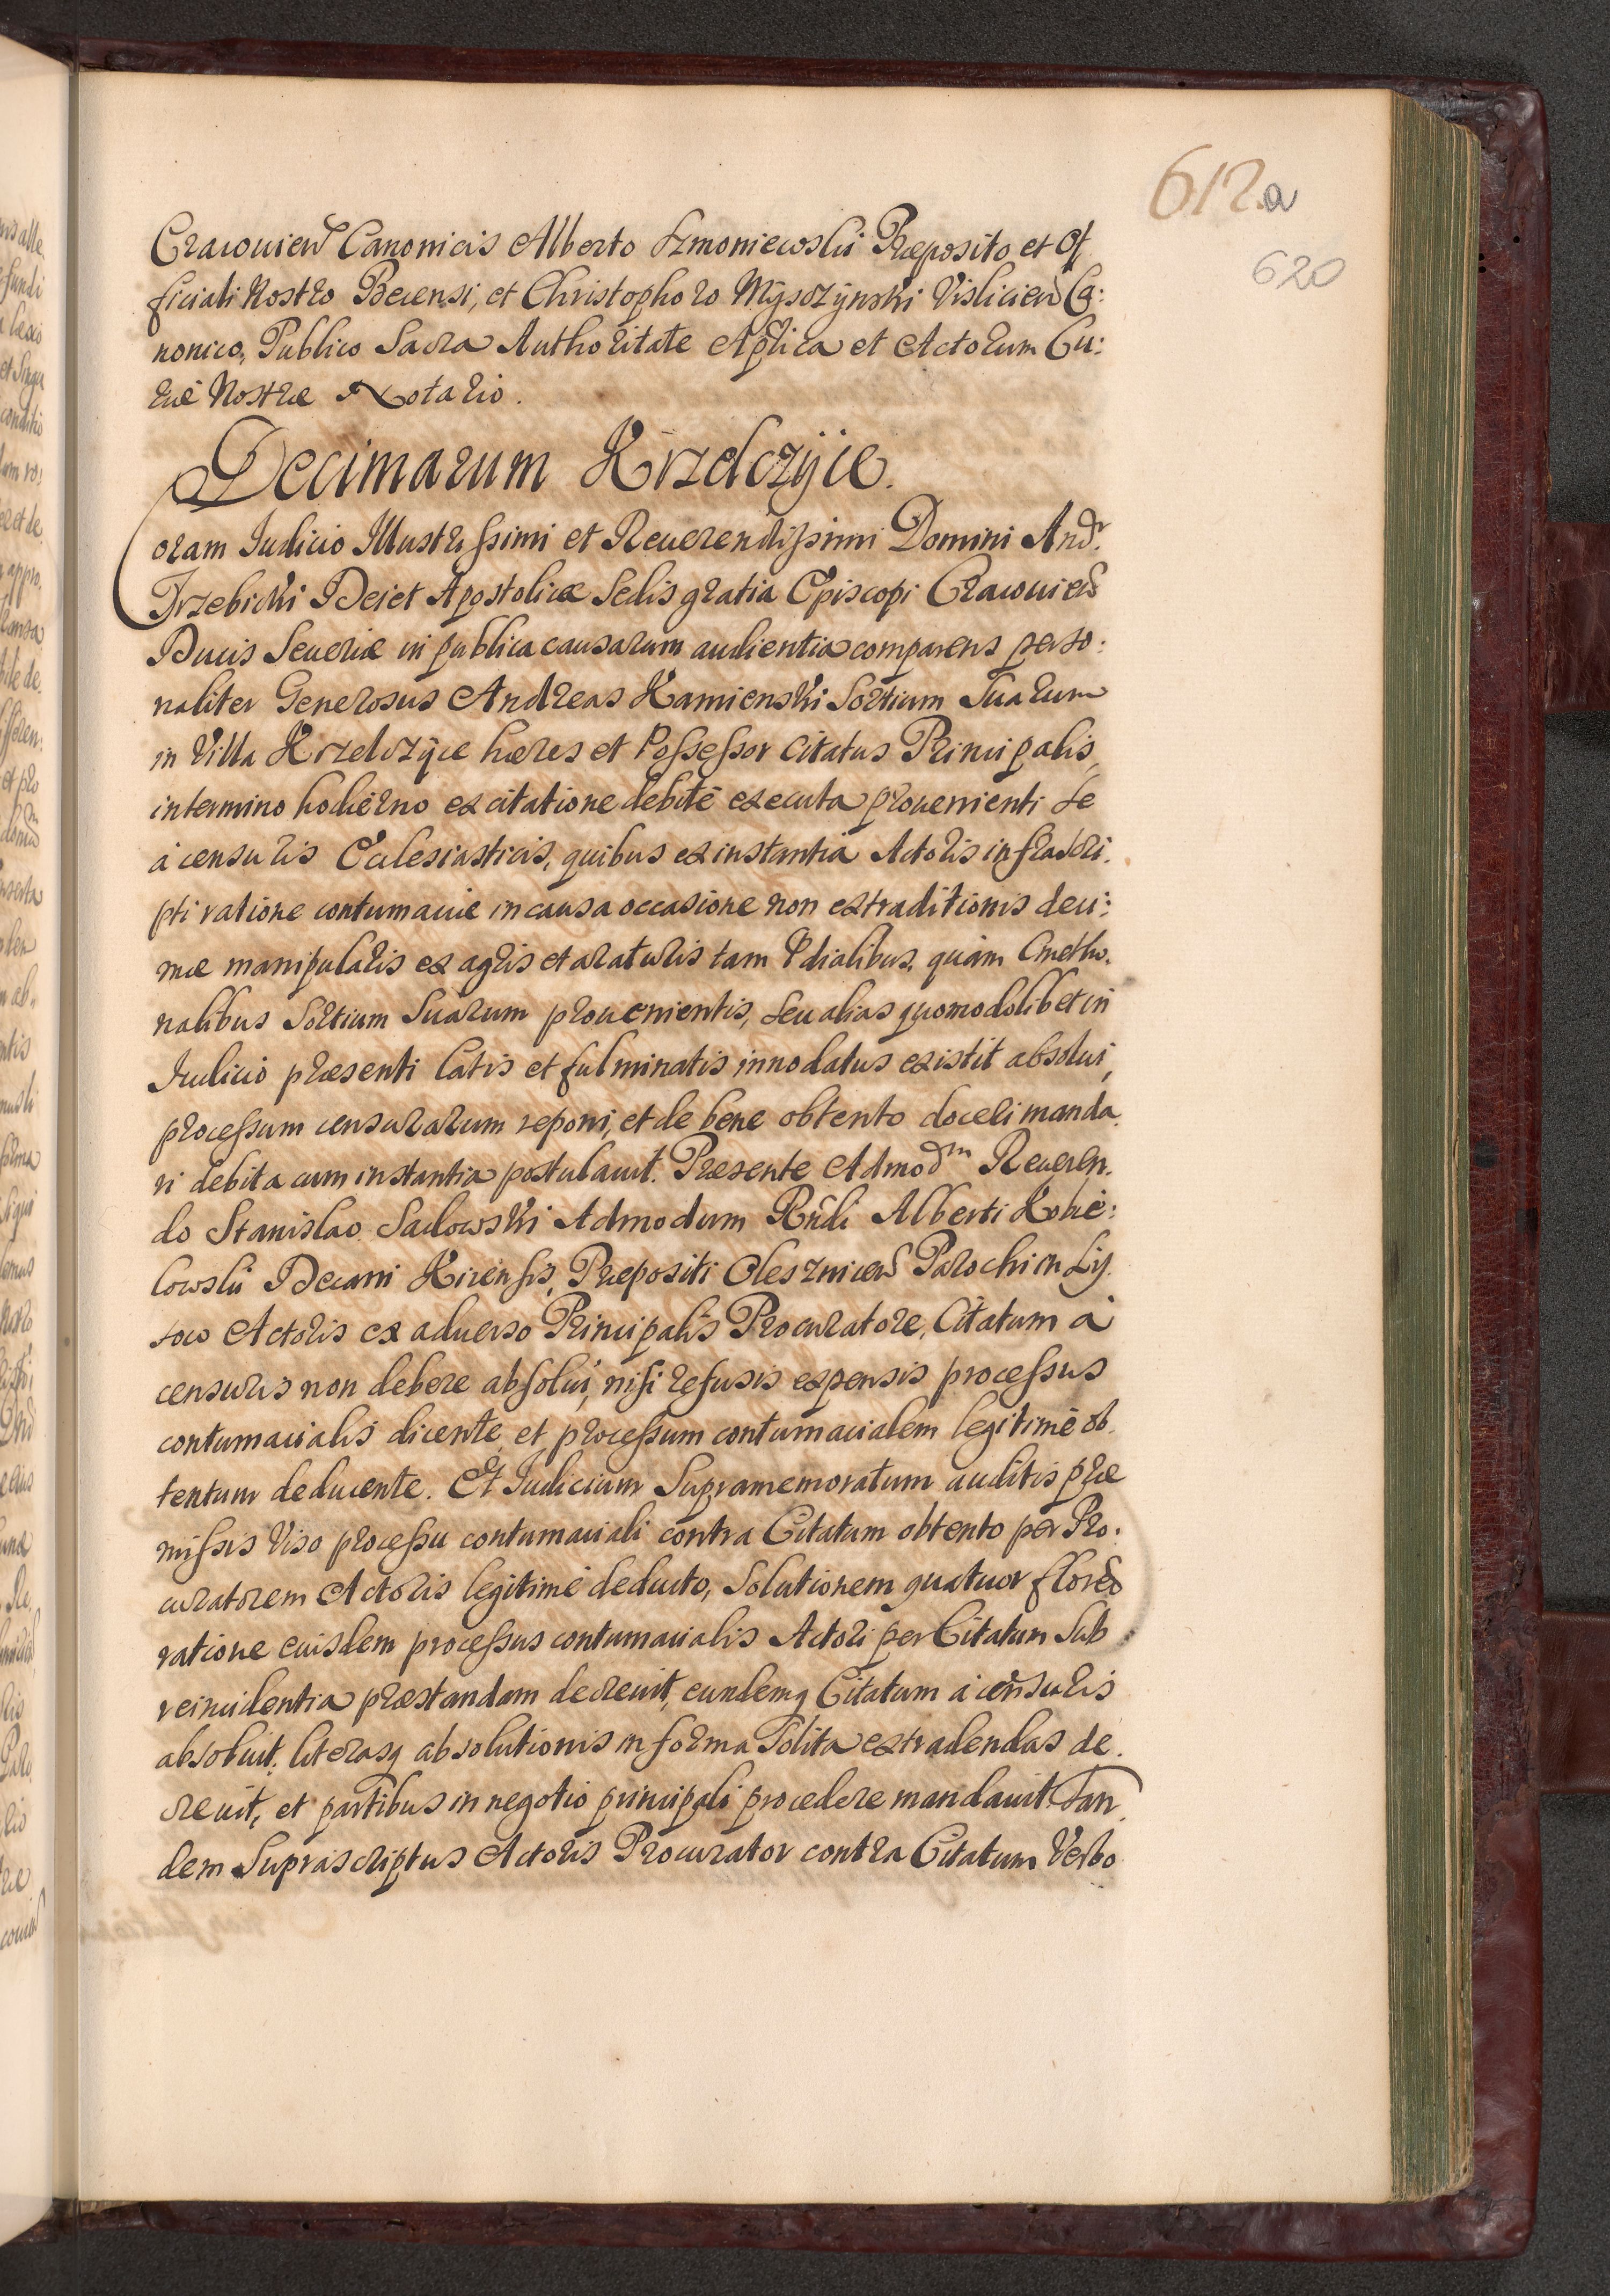 612.a
620
Cracouien Canonicis Alberto Szmoniewski Præposito et Of
ficiali Nostro Becensi, et Christophoro Mysczynski Vislicien Ca:
nonico, Publico Sacra Authoritate Aplica et Actorum Cu:
riæ Nostræ Notario.
Decimarum Krzelczyce.
Coram Iudicio Illustrissimi et Reuerendissimi Domini Andr.
Trzebicki Dei et Apostolicæ Sedis gratia Episcopi Cracouien
Ducis Seueriæ in publica causarum audientia comparens perso:
naliter Generosus Andreas Kamienski Sortium Suarum
in Villa Krzelczyce hæres et Possessor Citatus Principalis,
in termino hodierno ex citatione debite executa proueniente Se
à censuris Ecclesiasticis, quibus ex instantia Actoris infrascri.
pti ratione contumaciæ in causa occasione non extraditionis deci:
mæ manipularis ex agris et araturis tam Pdialibus, quàm Cmetho.
nalibus Sortium Suarum prouenientis, seu alias quomodolibet in
Iudicio præsenti latis et fulminatis innodatus existit absolui,
processum censurarum reponi, et de bene obtento doceri manda.
ri debita cum instantia postulauit. Præsente Admodm Reueren.
do Stanislao Sadowski Admodum Rndi Alberti Kobie:
lowski Decani Kijensis, Præpositi Oleszniceñ Parochi in Lis.
sow Actoris ex aduerso Principalis Procuratore, Citatum à
censuris non debere absolui, nisi refusis expensis processus
contumacialis dicente, et processum contumacialem legitimè ob.
tentum deducente. Et Iudicium Supramemoratum auditis præ
missis Viso processu contumaciali contra Citatum obtento per Pro.
curatorem Actoris legitimè deducto, Solutionem quatuor floren
ratione eiusdem processus contumacialis Actori per Citatum Sub
reincidentia præstandam decreuit, eundemq Citatum à censuris
absoluit, literasq absolutionis in forma Solita extradendas de.
creuit, et partibus in negotio principali procedere mandauit. Tan.
dem Suprascriptus Actoris Procurator contra Citatum Verbo